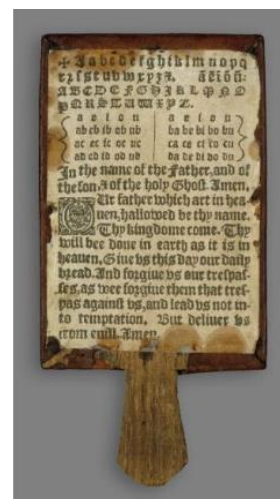 ✠ A a b c d e f g h i k l m n o p q
r ꝛ ſ s t u v w x y z &. a e i o u:
A B C D E F G H I K L M N O
P Q R S T U W X Y Z.
a e i o u a e i o u
ab eb ib ob ub ba be bi bo bu
ac ec ic oc uc ca ce ci co cu
ad ed id od ud da de di do du
In the name of the Father, and of
the ſon, & of the holy Ghoſt. Amen.
Our father which art in hea-
uen, hallowed be thy name.
Thy kingdome come. Thy
will bee done in earth as it is in
heauen. Giue vs this day our daily
bread. And forgiue vs our treſpaſ-
ſes, as wee forgiue them that treſ-
pas againſt vs, and lead vs not in-
to temptation. But deliuer vs
from euill. Amen